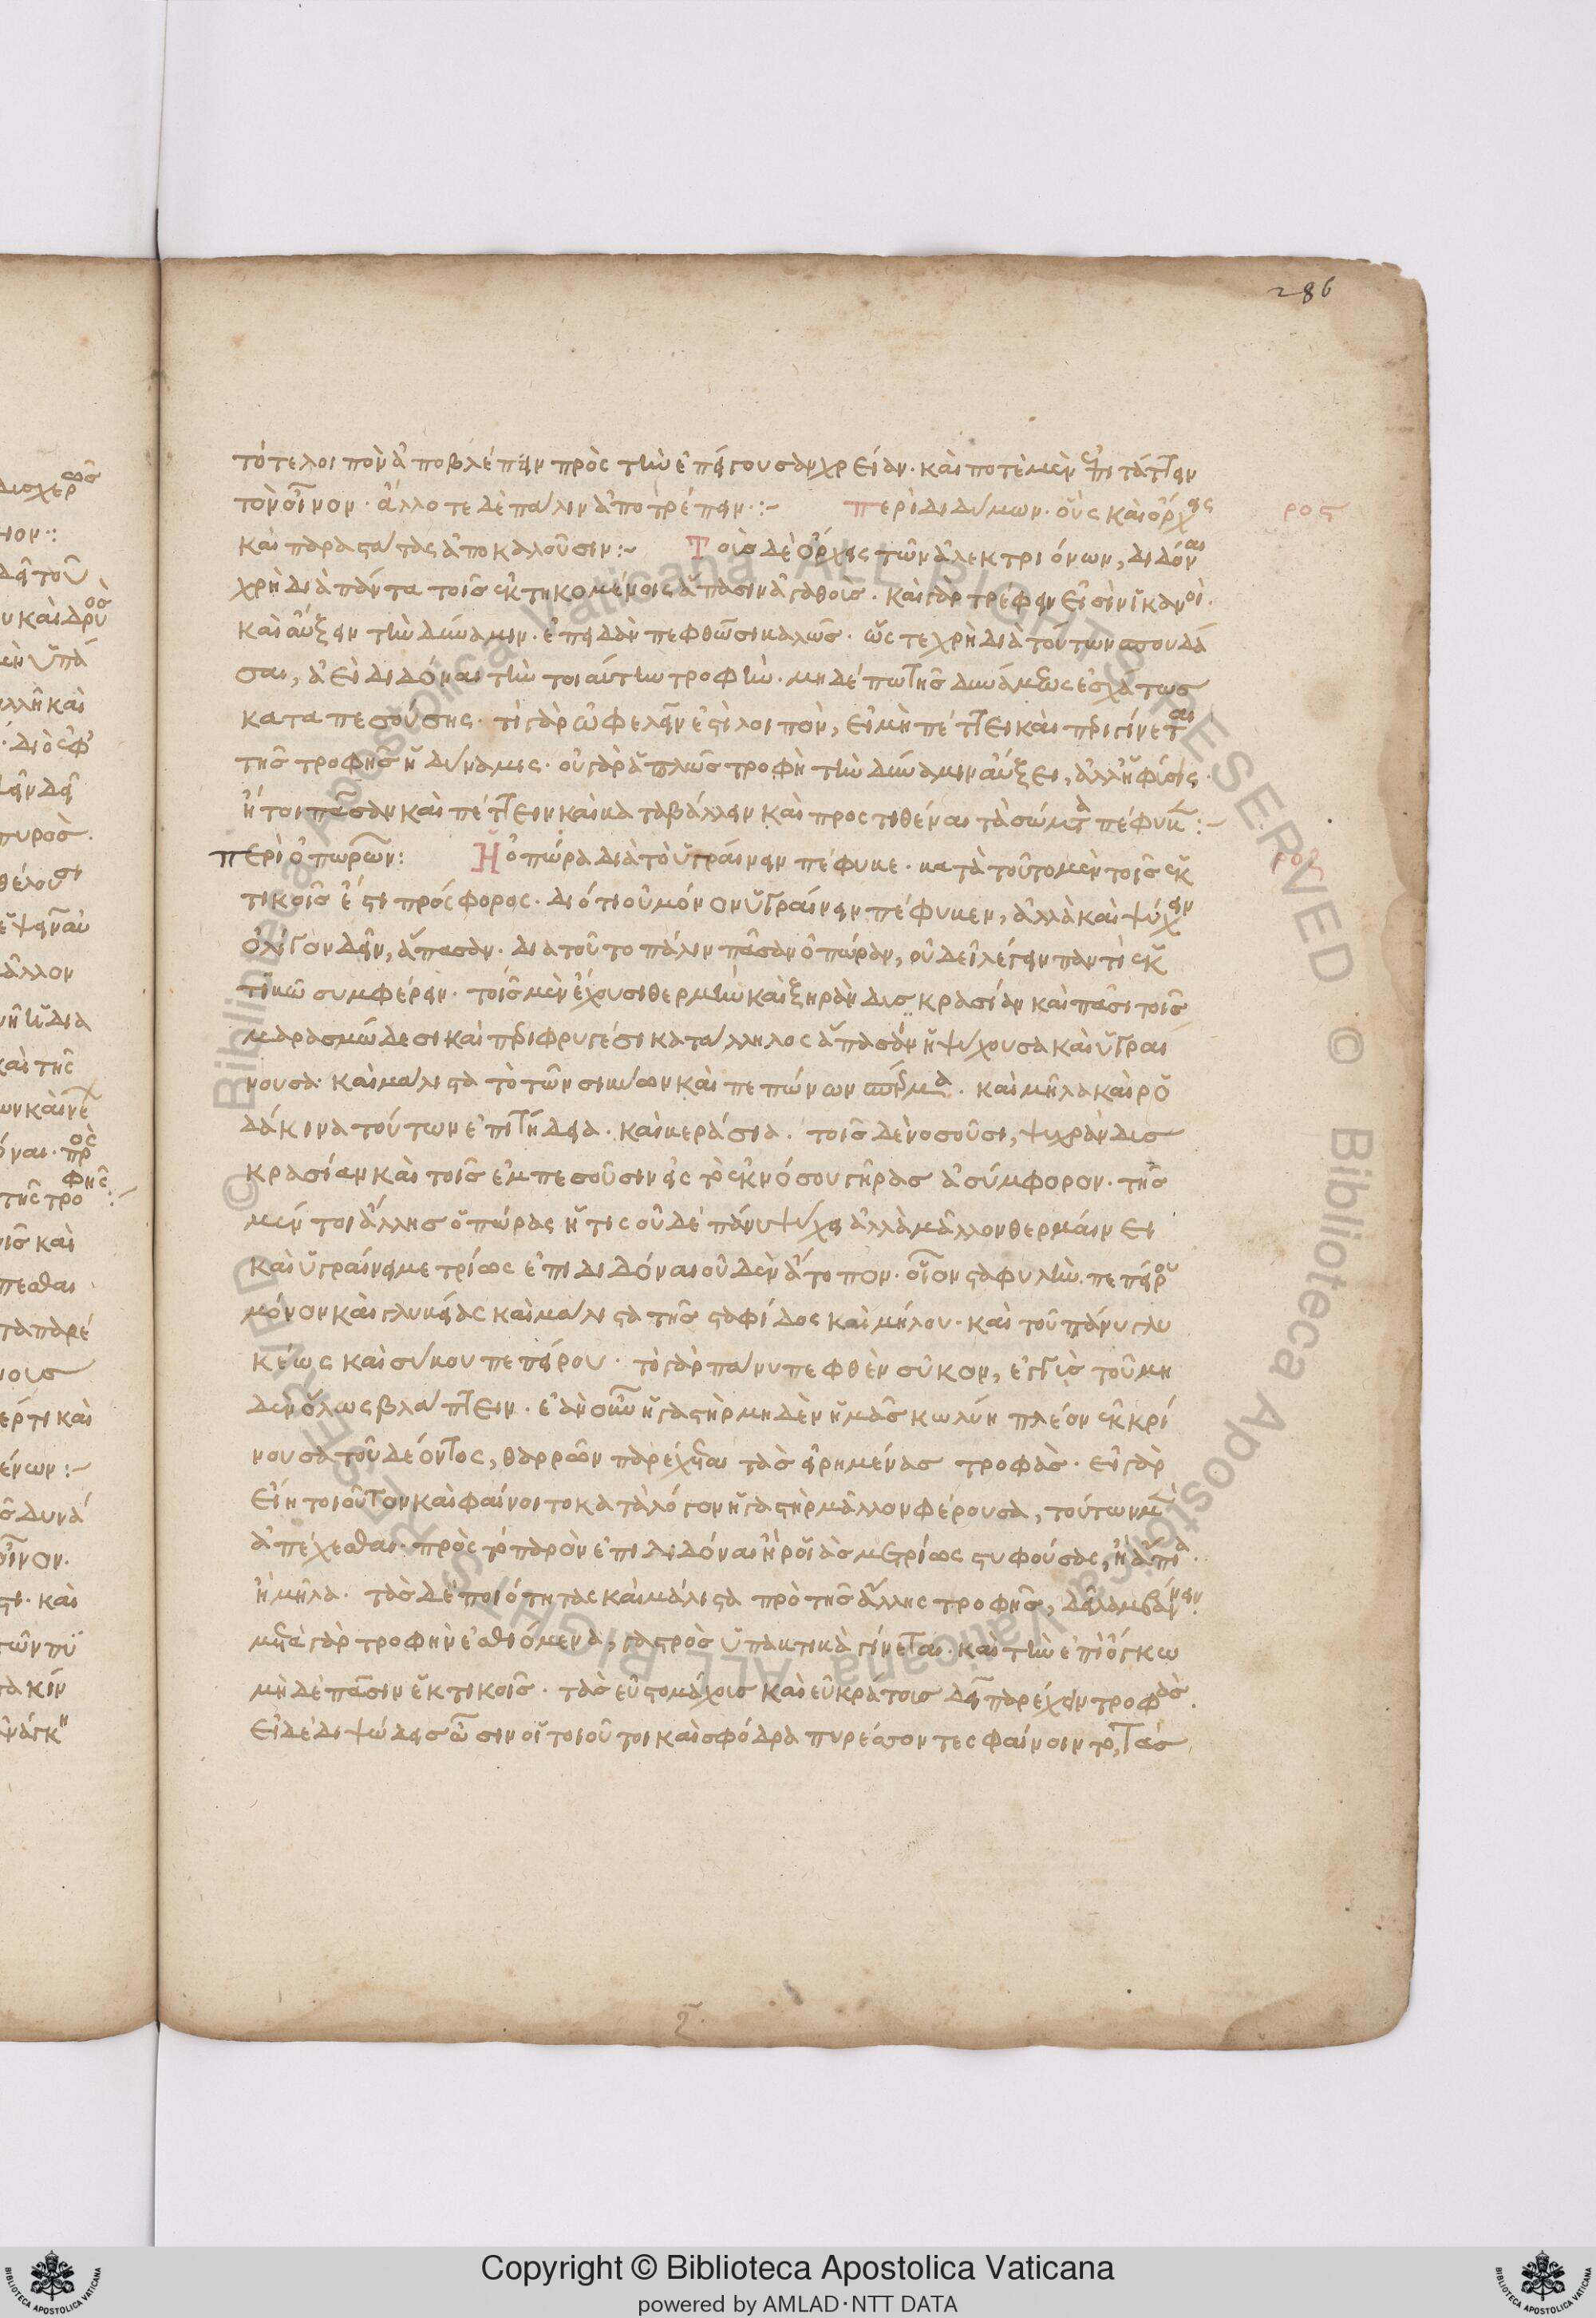 286
τότε λοιπὸν ἀποβλέπειν πρὸς τὴν ἐπείγουσαν χρείαν· καὶ ποτὲ μὲν ἐπιτάττειν
τὸν οἶνον· ἄλλοτε δὲ πάλιν ἀποτρέπειν·:- περὶ διδύμων· οὓς καὶ ὄρχεις ρος
καὶ παραστάτας ἀποκαλοῦσιν:~ Τοὺς δὲ ὄρχεις τῶν ἀλεκτριόνων, διδόναι
χρὴ διὰ πάντα τοῖς ἐκτηκομένοις ἅπασιν ἀγαθοὺς· καὶ γὰρ τρέφειν εἰσὶν ἱκανοὶ·
καὶ αὔξειν τὴν δύναμιν· ἐπειδὰν πεφθῶσι καλῶς· ὥστε χρὴ διὰ τούτων σπουδά
σαι, ἀεὶ διδόναι τὴν τοιαύτην τροφὴν· μηδέπω τῆς δυνάμεως ἐσχάτως
καταπεσούσης· τί γὰρ ὠφελεῖν ἐστὶ λοιπὸν, εἰ μὴ πέττει καὶ περιγίνεται
τῆς τροφῆς ἡ δύναμις· οὐ γὰρ ἁπλῶς τροφὴ τὴν δύναμιν αὔξει, ἀλλ' ἡ φύσις·
ἤτοι πᾶσαν καὶ πέττειν καὶ καταβάλλειν καὶ προστιθέναι τὰ σώματα πέφυκε:-
περὶ ὀπωρῶν: Ἡ ὀπώρα διὰ τὸ ὑγραίνειν πέφυκε· κατὰ τοῦτο μὲν τοῖς ἑκ ροζ
τικοῖς ἐστι πρόσφορος· διότι οὐ μόνον ὑγραίνειν πέφυκεν, ἀλλὰ καὶ ψύχειν
ὀλίγον δεῖν, ἅπασαν· διατοῦτο πάλιν πᾶσαν ὀπώραν, οὐ δεῖ λέγειν παντὶ ἑκ
τικῷ συμφέρειν· τοῖς μὲν ἔχουσι θερμὴν καὶ ξηρὰν δυσκρασίαν καὶ πᾶσι τοῖς
μαρασμώδεσι καὶ περιφρυγέσι κατάλληλος ἅπασα ἡ ψύχουσα καὶ ὑγραί
νουσα· καὶ μάλιστα τὸ τῶν σικύων καὶ πεπόνων σπέρμα· καὶ μῆλα καὶ ρο
δάκινα τούτων ἐπιτήδεια· καὶ κεράσια· τοῖς δὲ νοσοῦσι, ψυχρὰν δυσ
κρασίαν καὶ τοῖς ἐμπεσοῦσιν εἰς τὸ ἐκ νόσου γῆρας ἀσύμφορον· τῆς
μέν τοι ἄλλης ὀπώρας ἥτις οὐδὲ πάνυ ψύχει ἀλλὰ μᾶλλον θερμαίνει
καὶ ὑγραίνει μετρίως ἐπιδιδόναι οὐδὲν ἄτοπον· οἷον σταφυλὴν πεπείρου
μόνον καὶ γλυκείας καὶ μάλιστα τῆς σταφίδος καὶ μήλου· καὶ τοῦ πάνυ γλυ
κέως καὶ σύκου πεπείρου· τὸ γὰρ πάνυ πεφθὲν σῦκον, ἐγγὺς τοῦ μη
δὲν ὅλως βλάπτειν· ἐὰν οὖν ἡ γαστὴρ μηδὲν ἡμᾶς κωλύῃ πλέον ἐκκρί
νουσα τοῦ δέοντος, θαρρῶν παρέχειν τὰς εἰρημένας τροφὰς· εἰ γὰρ
εἴη τοιοῦτον καὶ φαίνοιτο κατὰ λόγον ἡ γαστὴρ μᾶλλον φέρουσα, τούτων μὲν
ἀπέχεσθαι· πρὸς τὸ παρὸν ἐπιδιδόναι ἢ ροιὰς μετρίως στυφούσας, ἢ ἄπια·
ἢ μῆλα· τὰς δὲ ποιότητας καὶ μάλιστα πρὸ τῆς ἄλλης τροφῆς, δεῖ λαμβάνειν·
μετὰ γὰρ τροφὴν ἐσθιόμενα, γαστρὸς ὑπακτικὰ γίνεται· καὶ τὴν ἐπὶ ὄγκω
μὴ δὲ πᾶσιν ἑκτικοῖς· τὰς εὐστομάχους καὶ εὐκράτους δεῖ παρέχειν τροφὰς·
εἰ δὲ διψώδεις ὦσιν οἱ τοιοῦτοι καὶ σφόδρα πυρέσσοντες φαίνοιντο, τὰς
Copyright © Biblioteca Apostolica Vaticana
powered by AMLAD·NTT DATA